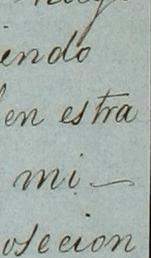 iendo
en estra
mi
oseccion